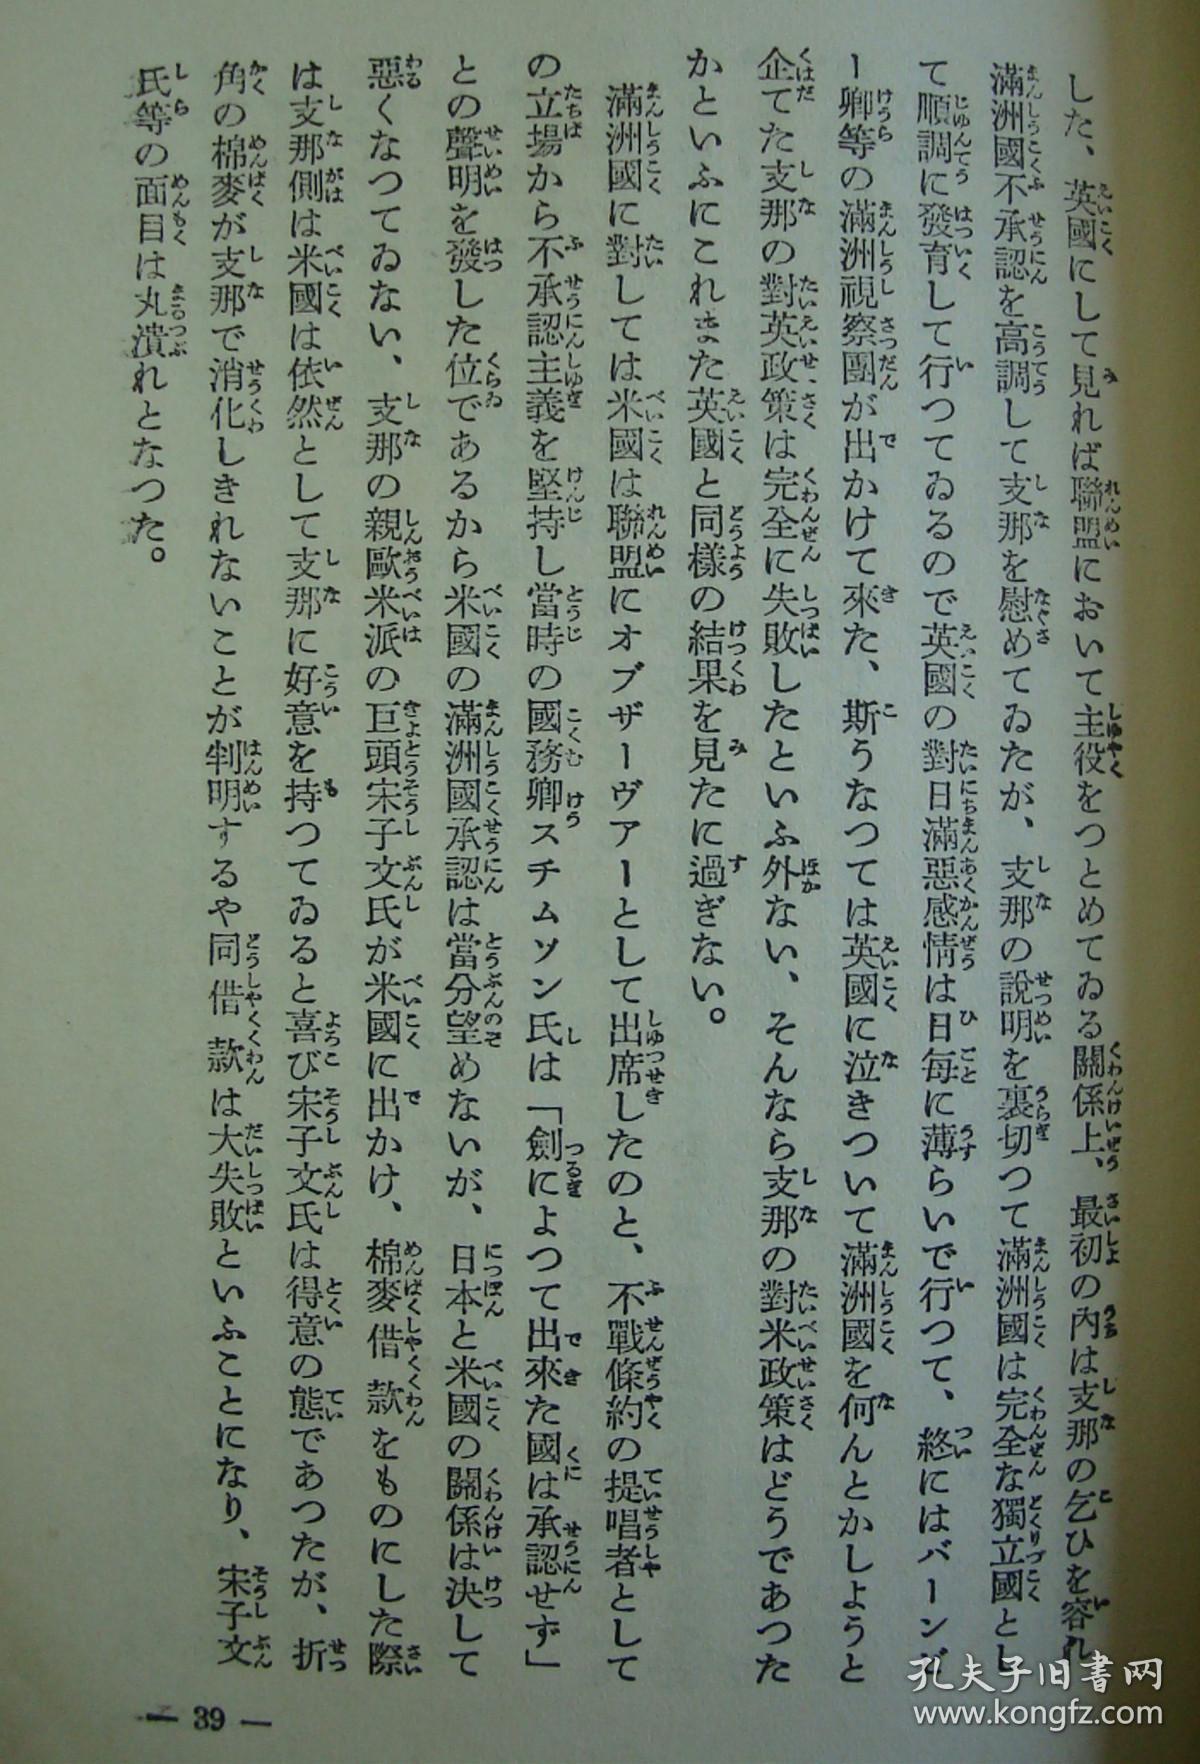 した、英國にして見れば聯盟において主役をつとめてゐる關係上、最初の內は支那の乞ひを容れ
滿洲國不承認を高調して支那を慰めてゐたが、支那の說明を裏切つて滿洲國は完全な獨立國とし
て順調に發育して行つてゐるので英國の對日滿惡感情は日每に薄らいで行つて、終にはバーンビ
ー卿等の滿洲視察團が出かけて來た、斯うなつては英國に泣きついて滿洲國を何んとかしようと
企てた支那の對英政策は完全に失敗したといふ外ない、そんなら支那の對米政策はどうであつた
かといふにこれまた英國と同樣の結果を見たに過ぎない。
滿洲國に對しては米國は聯盟にオブザーヴアーとして出席したのと、不戰條約の提唱者として
の立場から不承認主義を堅持し當時の國務卿スチムソン氏は「劍によつて出來た國は承認せず」
との聲明を發した位であるから米國の滿洲國承認は當分望めないが、日本と米國の關係は決して
惡くなつてゐない、支那の親歐米派の巨頭宋子文氏が米國に出かけ、棉麥借款をものにした際
は支那側は米國は依然として支那に好意を持つてゐると喜び宋子文氏は得意の態であつたが、折
角の棉麥が支那で消化しきれないことが判明するや同借款は大失敗といふことになり、宋子文
氏等の面目は丸潰れとなつた。
— 39 —
孔夫子旧书网
www.kongfz.com